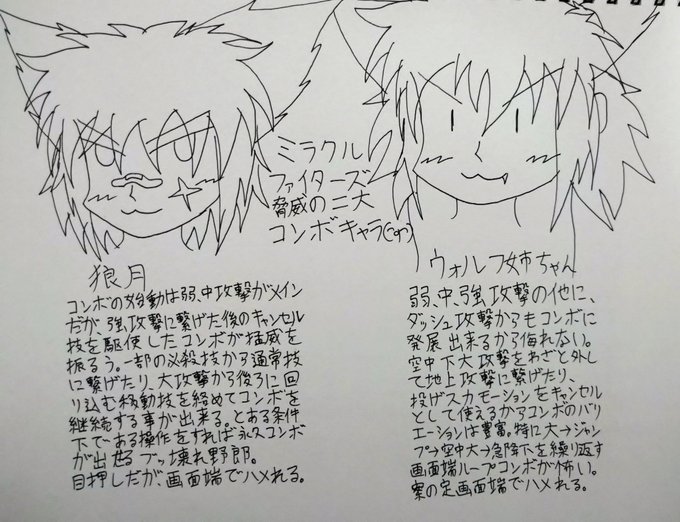 ミラクル
ファイターズ
脅威の二大
コンボキャラ
狼月
コンボの始動は弱、中攻撃がメイン
だが、強攻撃に繋げた後のキャンセル
技を駆使したコンボが猛威を
振るう。一部の必殺技から通常技
に繋げたり、大攻撃から後ろに回
り込む移動技を絡めてコンボを
継続する事が出来る。とある条件
下である操作をすれば永久コンボ
が出せるブッ壊れ野郎。
目押しだが画面端でハメれる。
ウォルフ姉ちゃん
弱、中、強攻撃の他に、
ダッシュ攻撃からもコンボに
発展出来るから侮れない。
空中下大攻撃をわざと外し
て地上攻撃に繋げたり、
投げスカモーションをキャンセル
として使えるからコンボのバリ
エーションは豊富。特に大→ジャン
プ→空中大→急降下を繰り返す
画面端ループコンボが怖い。
案の定画面端でハメれる。